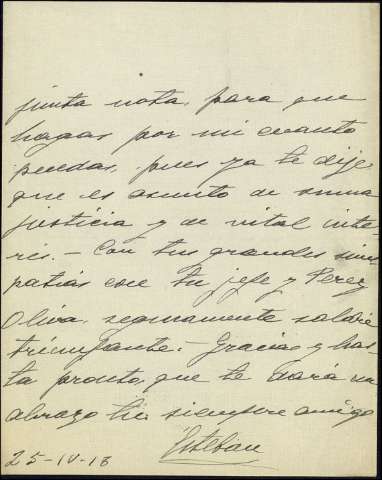 junta nota, para que
hagas por mi cuanto
puedas, pues ya te dije
que es asunto de suma
justicia y de vital inte-
rés. - Con tus grandes sim-
patías con tu jefe y Perez
Oliva, seguramente saldré
triunfante. - Gracias y has-
ta pronto, que te dará un
abrazo tu siempre amigo
Esteban
25-IV-18